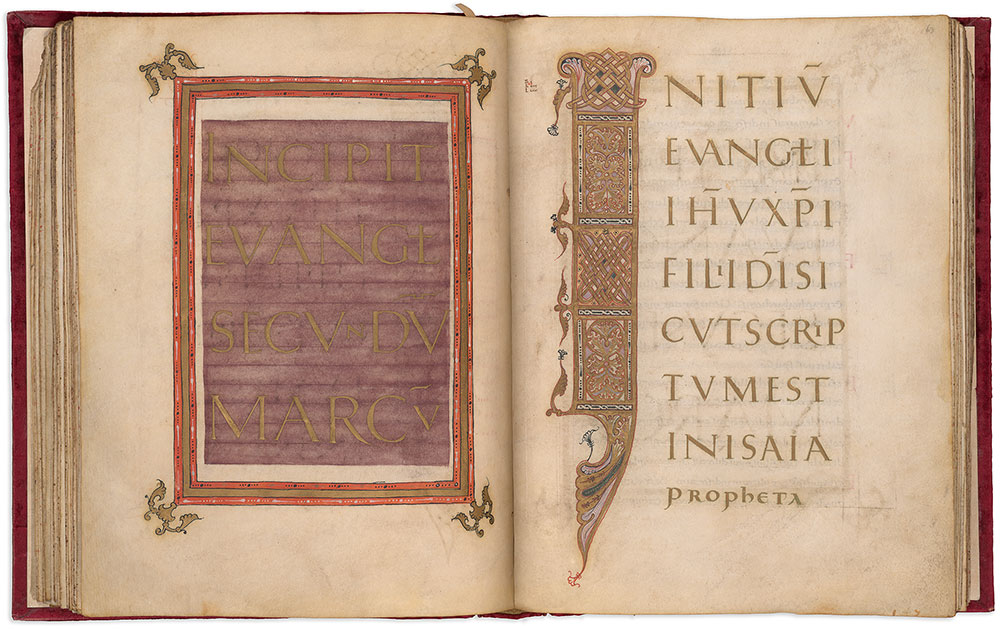 INCIPIT
EVANGƚ
SECVNDV̄
MARCV̄
INITIV̄
EVANGEƚI
IH̄V XP̄I
FILI DĪ SI
CVT SCRIP
TVM EST
IN ISAIA
propheta